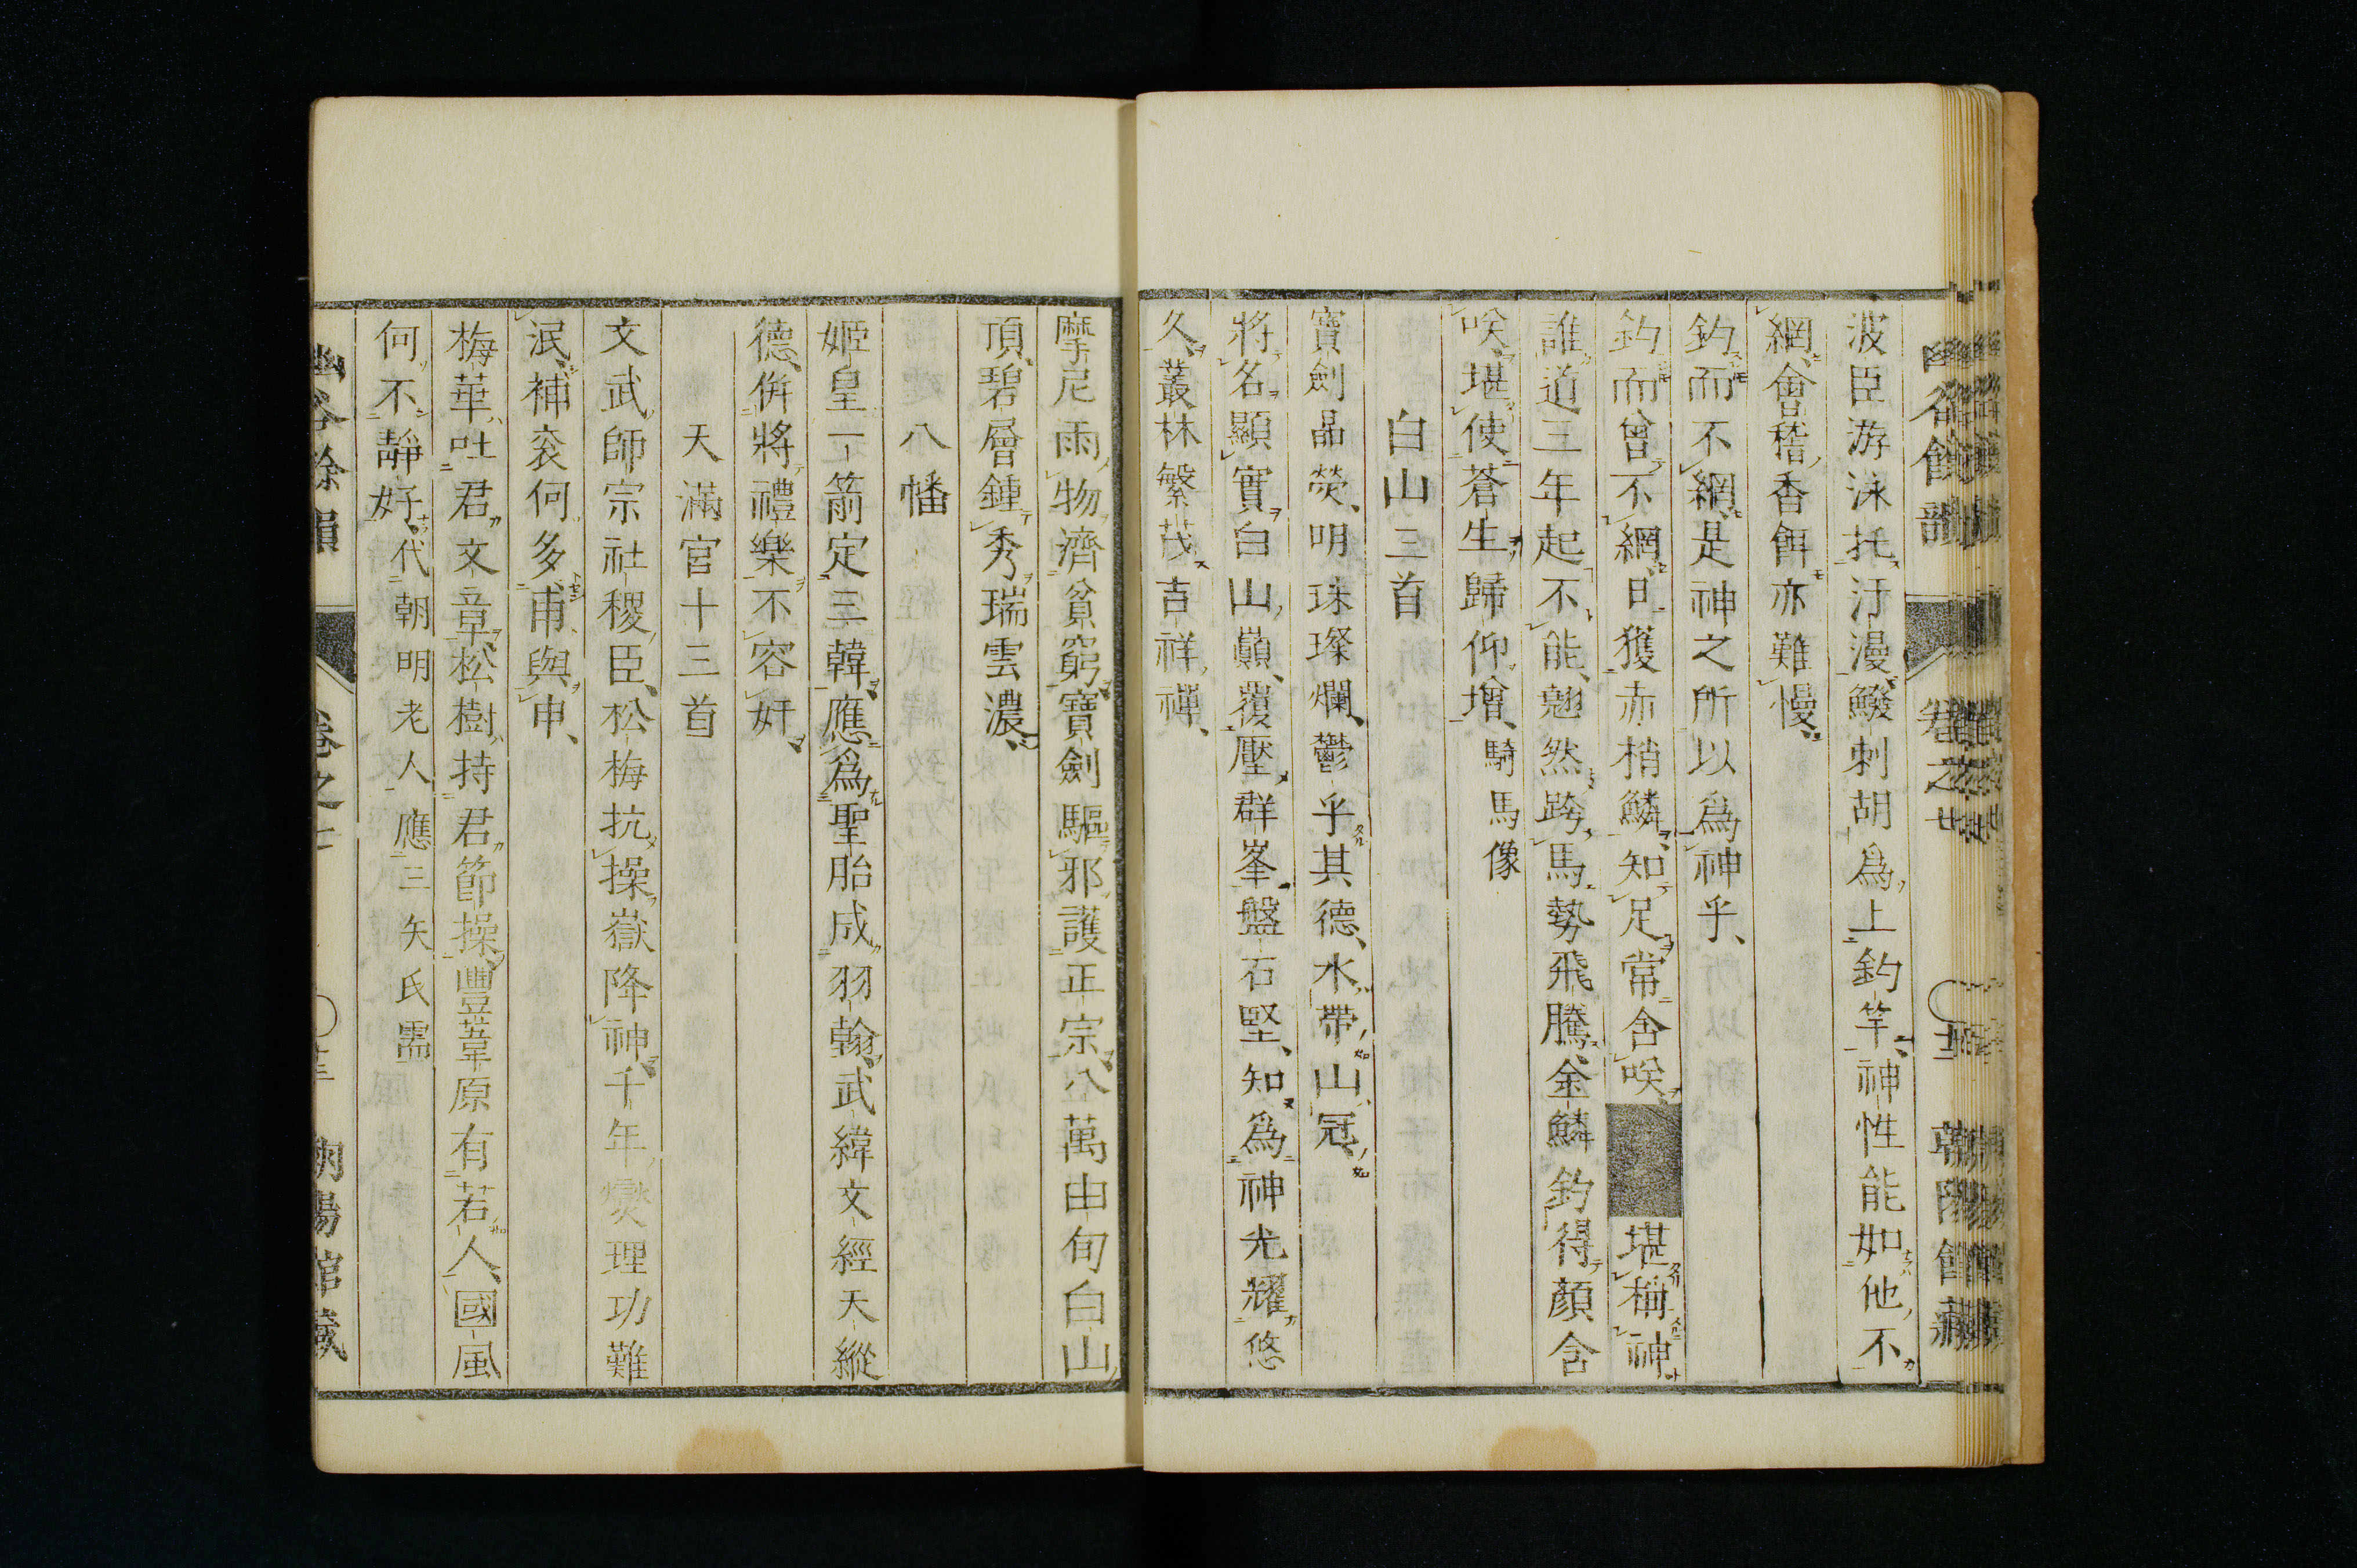 波臣游泳托汙漫、鱍刺胡爲上釣竿、神性能如他不
網、會稽香餌亦難慢、
釣而不網、是神之所以爲神乎、
釣而曾不網、日獲赤梢鱗、知足常含咲、堪稱神
誰道三年起不能、翹然跨馬勢飛騰、金鱗釣得顏含
咲、堪使蒼生歸仰增、騎馬像
白山三首
寶劍晶熒、明珠璨爛、鬱乎其德、水帶山冠、
將名顯實、白山巔、覆壓群峯盤石堅、知爲神光耀悠
久、叢林繁茂吉祥禪、
摩尼雨物濟貧窮、寶劍驅邪護正宗、八萬由旬白山
頂、碧層鍾秀瑞雲濃、
八幡
姬皇一箭定三韓、應爲聖胎成羽翰、武緯文經天縱
德、併將禮樂不容奸、
天滿宮十三首
文武師宗社稷臣、松梅抗操嶽降神、千年燮理功難
泯、補袞何多甫與申、
梅華吐君文章、松樹持君節操、豐葦原有若人、國風
何不靜好、代朝明老人應三矢氏需
幽谷餘韻 卷之七 朝陽館藏